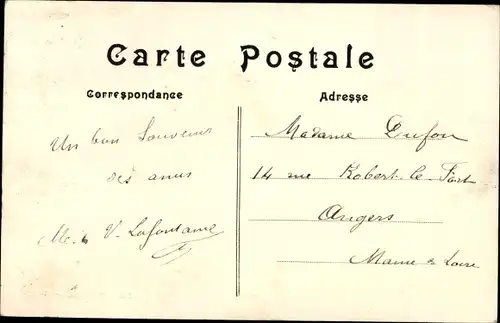 Carte Postale
Correspondance
Adresse
Un bon Souvenir
des amis
V. Lafontaine
Madame Dufou
14 rue Robert-le-Fort
Angers
Maine & Loire